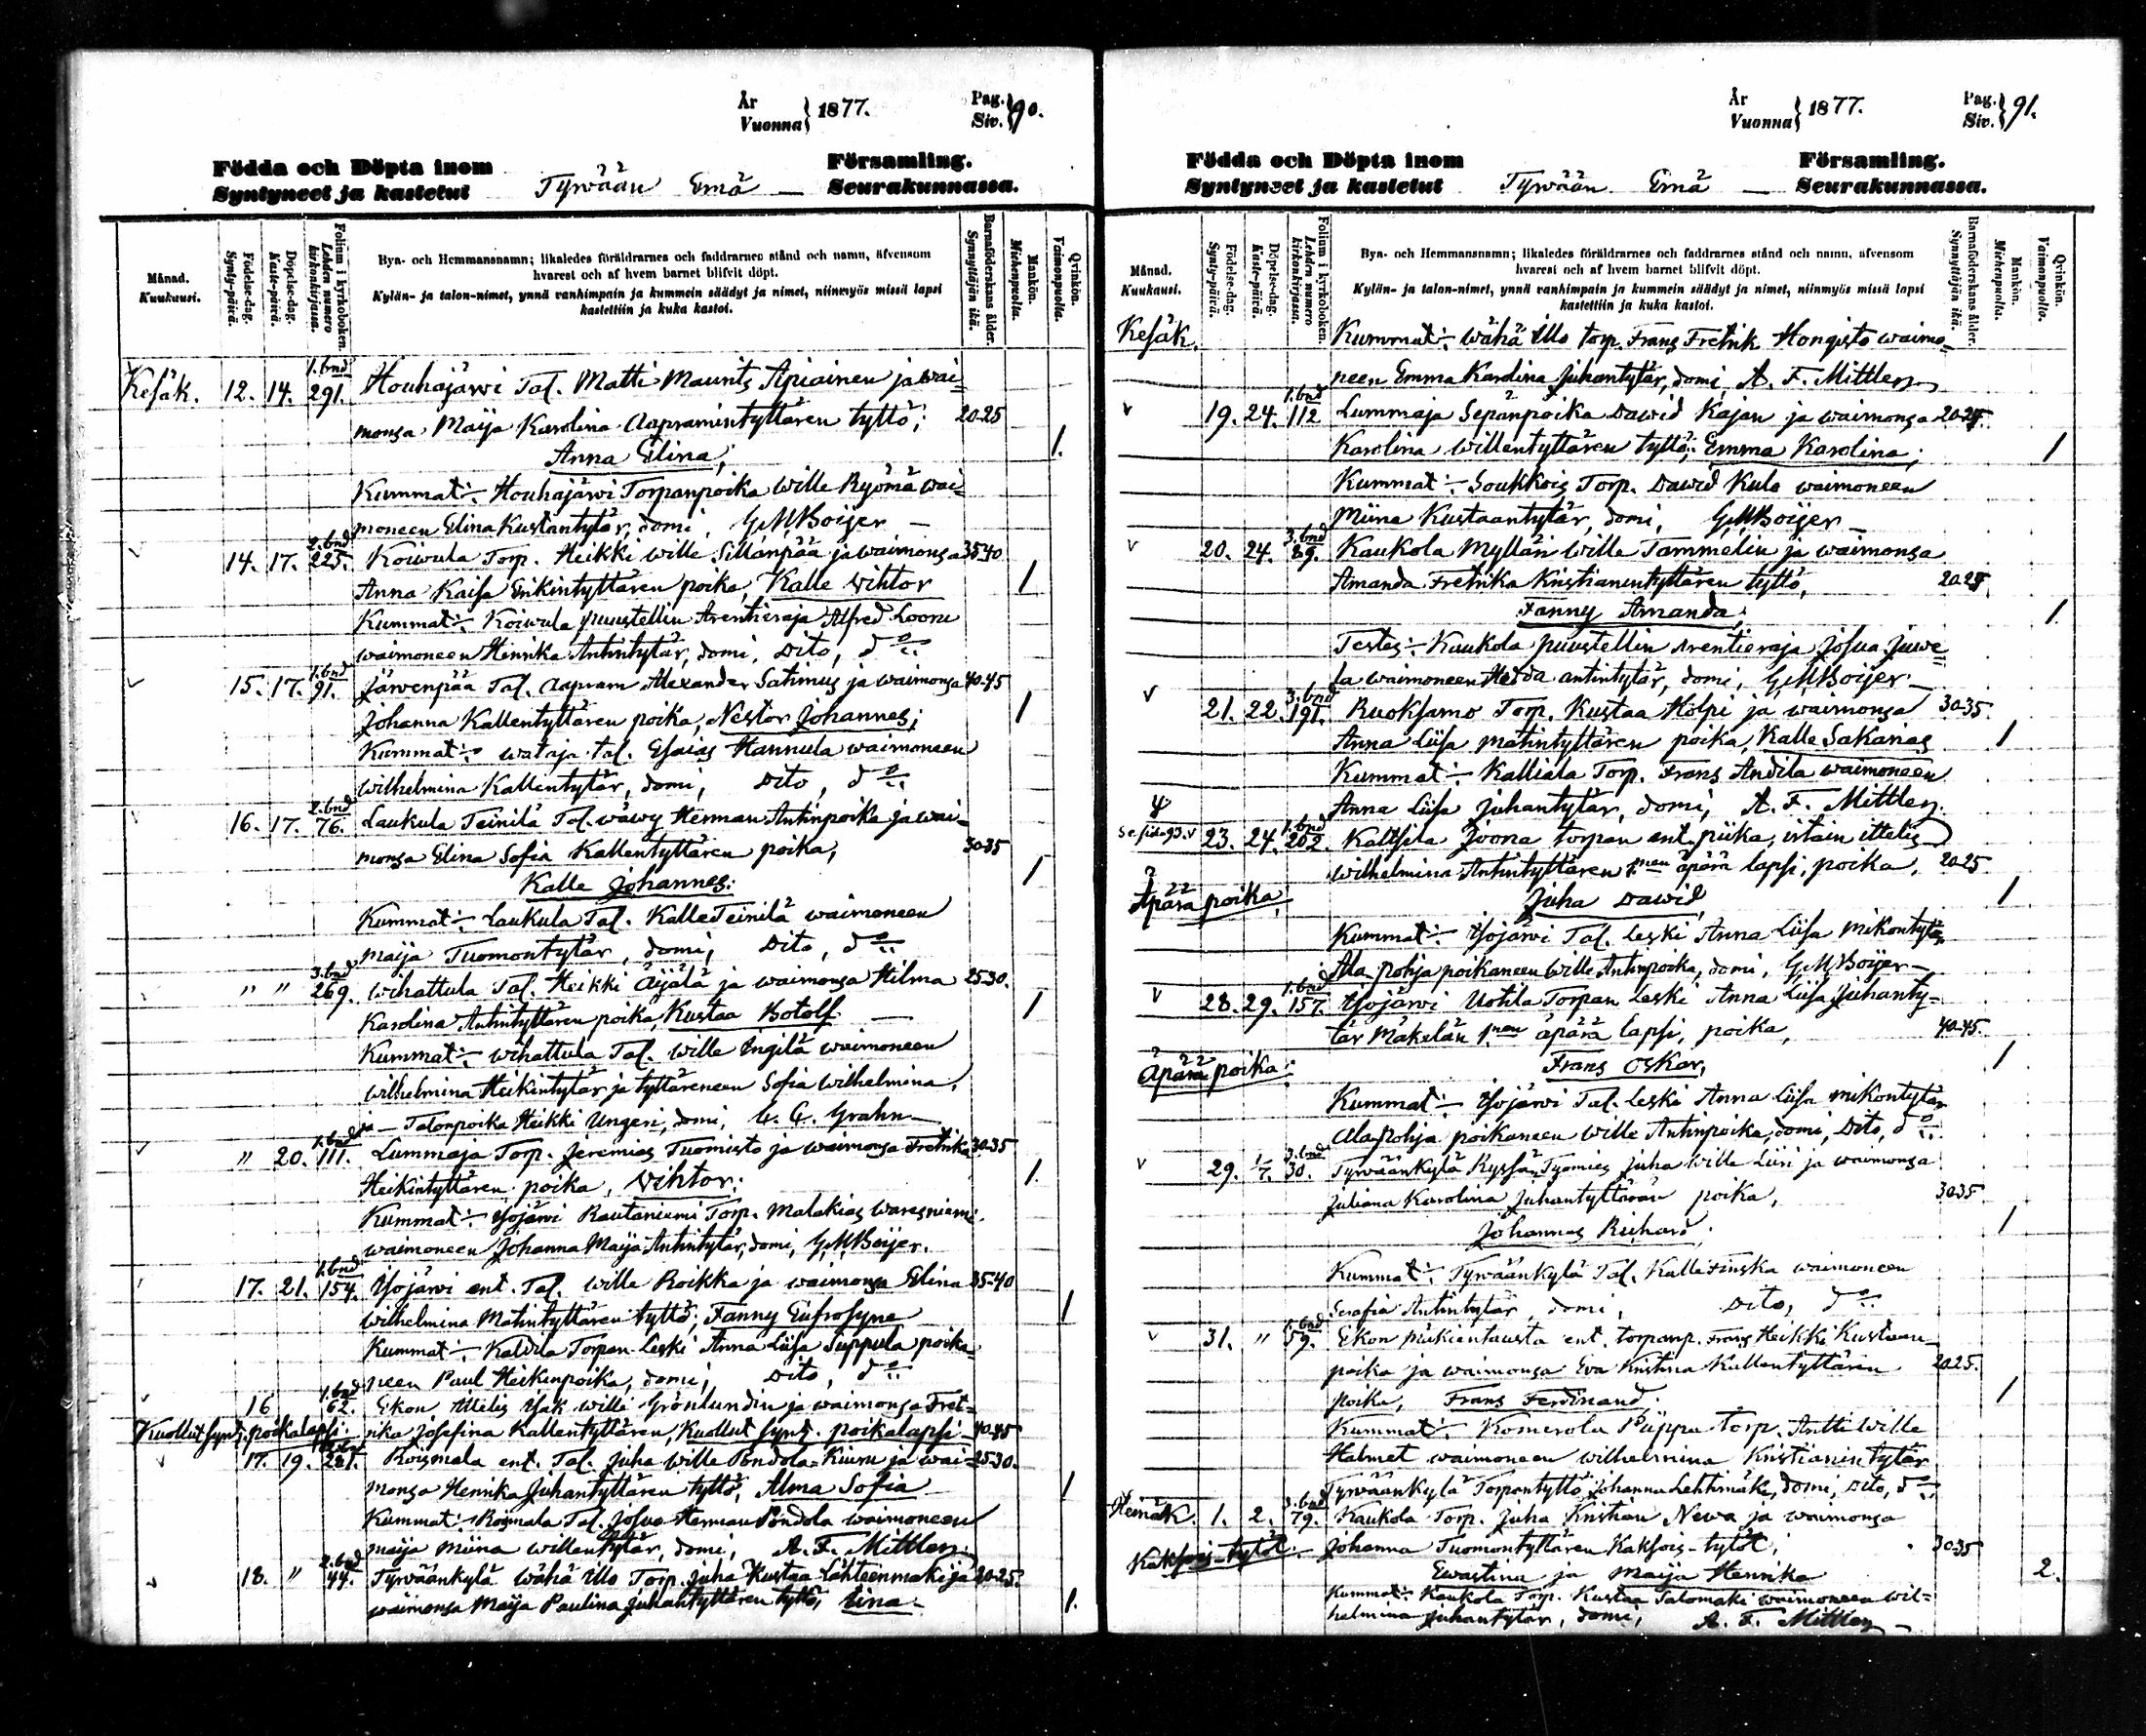 År
Vuonna } 1877.
Pag.
Siv. } 90.
Födda och Döpta inom
Församling.
Syntyneet ja kastetut
Tyrwään Emä —
Seurakunnassa.
Månad.
Kuukausi.
Födelse-dag.
Synty-päivä.
Döpelse-dag.
Kaste-päivä.
Folium i kyrkoboken.
Lehden numero kirkonkirjassa.
Bya- och Hemmansnamn; likaledes föräldrarnes och faddrarnes stånd och namn, äfvensom
hvarest och af hvem barnet blifvit döpt.
Kylän- ja talon-nimet, ynnä vanhimpain ja kummein säädyt ja nimet, niinmyös missä lapsi
kastettiin ja kuka kastoi.
Barnaföderskans ålder.
Synnyttäjän ikä.
Mankön.
Miehenpuolta.
Qvinkön.
Vaimonpuolta.
1. bnd
Kesäk. 12. 14. 291. Houhajärwi Tal. Matti Maurits Apiainen ja wai=
monsa Maija Karolina Aapramintyttären tyttö; 20-25
Anna Elina; 1.
Kummat:. Houhajärwi Torpanpoika Wille Ryömä wai=
moneen Elina Kustantytär, domi, G M Boijer —
2. bnd
14. 17. 225. Koiwula Torp. Heikki Wille Sillanpää ja waimonsa 35-40
Anna Kaisa Erikintyttären poika, Kalle Wihtor 1
Kummat:. Koiwula puustellin Arentieraja Alfred
waimoneen Henrika Antintytär, domi, Dito, do
1. bnd
15. 17. 91. Järwenpää Tal. Aapram Alexander Satimus ja waimonsa 40-45
Johanna Kallentyttären poika, Nestor Johannes; 1
Kummat:. Wataja tal. Esaias Hannula waimoneen
Wilhelmina Kallentytär, domi, Dito, do
2. bnd
16. 17. 76. Laukula Teinilä Tal. wäwy Herman Antinpoika ja wai=
monsa Elina Sofia Kallentyttären poika, 30-35
Kalle Johannes: 1
Kummat:. Laukula Tal. Kalle Teinilä waimoneen
Maija Tuomontytär, domi, Dito, do
3. bnd
" " 269. Wihattula Tal. Heikki Äijälä ja waimonsa Hilma 25-30.
Karolina Antintyttären poika, Kustaa Botolf — 1
Kummat:. Wihattula Tal. Wille Ingilä waimoneen
Wilhelmina Heikintytär ja tyttäreneen Sofia Wilhelmina,
ja — Talonpoika Heikki Ungeri, domi, Grahn
1. bnd
" 20. 111. Lummaja Torp. Jeremias Tuomisto ja waimonsa Fretrika 30-35
Heikintyttären poika, Wihtor: 1.
Kummat:. Yojärwi Rautaniemi Torp. Malakias Waresniemi,
waimoneen Johanna Maija Antintytär, domi, G M Boijer.
1. bnd
17. 21. 154. Yojärwi ent. Tal. Wille Roikka ja waimonsa Elina 35-40
Wilhelmina Matintyttären tyttö; Fanny Eufrosyne 1
Kummat:. Kaldila Torpan Leski Anna Liisa Suppula poika=
neen Paul Heikinpoika, domi, Dito, do
1. bnd
16 62. Ekon Itellis Isak Wille Grönlundin ja waimonsa Fret=
Kuollut synt. poikalapsi. rika Josefina Kallentyttären, Kuollut synt. poikalapsi — 40-45
17. 19. 281. Roismala ent. Tal. Juha Wille Pondola-Kiuru ja wai= 25-30.
monsa Henrika Juhantyttären tyttö, Alma Sofia 1
Kummat:. Roismala Tal. Josua Herman Pondola waimoneen
Maija Miina Willentytär, domi, A. F. Mittler.
2. bnd
18. " 44. Tyrwäänkylä Wähä Ullo Torp. Juha Kustaa Lähteenmäki ja 20-25.
waimonsa Maija Paulina Juhantyttären tyttö, Eina — 1.
År
Vuonna } 1877.
Pag.
Siv. } 91.
Födda och Döpta inom
Församling.
Syntyneet ja kastetut
Tyrwään Emä —
Seurakunnassa.
Månad.
Kuukausi.
Födelse-dag.
Synty-päivä.
Döpelse-dag.
Kaste-päivä.
Folium i kyrkoboken.
Lehden numero kirkonkirjassa.
Bya- och Hemmansnamn; likaledes föräldrarnes och faddrarnes stånd och namn, äfvensom
hvarest och af hvem barnet blifvit döpt.
Kylän- ja talon-nimet, ynnä vanhimpain ja kummein säädyt ja nimet, niinmyös missä lapsi
kastettiin ja kuka kastoi.
Barnaföderskans ålder.
Synnyttäjän ikä.
Mankön.
Miehenpuolta.
Qvinkön.
Vaimonpuolta.
Kesäk. Kummat:. Wähä Ullo torp. Frans Fretrik Hongisto waimo=
neen Emma Karolina Juhantytär, domi, A. F. Mittler
1. bnd
19. 24. 112 Lummaja Sepänpoika Dawid Kajan ja waimonsa 20-24.
Karolina Willentyttären tyttö; Emma Karolina; 1
Kummat:. Soukkois Torp. Dawid Kulo waimoneen
Miina Kustaantytär, domi, G M Boijer —
3. bnd
20. 24. 89. Kaukola Myllärі Wille Tammelin ja waimonsa
Amanda Fretrika Kristianintyttären tyttö, 20-24
Fanny Amanda; 1.
Testes:. Kaukola puustellin Arentieraja Josua Juwe
la waimoneen Hedda Antintytär, domi, G M Boijer —
3. bnd
21. 22. 191. Ruoksamo Torp. Kustaa Hölpi ja waimonsa 30-35.
Anna Liisa Matintyttären poika, Kalle Sakarias 1
Kummat:. Kalliala Torp. Frans Andila waimoneen
Anna Liisa Juhantytär, domi, A. F. Mittler.
1. bnd
23. 24. 202. Kaltsila Joona torpan ent. piika, irtain ittelis
Wilhelmina Antintyttären 1.nen äpärä lapsi, poika, 20-25
Äpärä poika, Juha Dawid 1
Kummat:. Yojärwi Tal. Leski Anna Liisa Mikontytär
Ala pohja poikaneen Wille Antinpoika, domi, G M Boijer —
1. bnd
28. 29. 157. Yojärwi Uotila Torpan Leski Anna Liisa Juhanty=
tär Mäkelän 1.nen äpärä lapsi, poika, 40-45.
Äpärä poika: Frans Oskar, 1
Kummat:. Yojärwi Tal. Leski Anna Liisa Mikontytär
Alapohja poikaneen Wille Antinpoika, domi, Dito, do
3. bnd
29. 1/7. 30. Tyrwäänkylä Ryssän Tyomies Juha Wille Liiri ja waimonsa
Juliana Karolina Juhantyttären poika, 30-35
Johannes Richard, 1
Kummat:. Tyrwäänkylä Tal. Kalle Finska waimoneen
Serafia Antintytär, domi, Dito, do
1. bnd
31. " 59. Ekon ent. torpanp. Frans Heikki Kustaan
poika ja waimonsa Ewa Kristina Kallentyttären 20-25.
poika, Frans Ferdinand, 1
Kummat:. Komerola Piippu torp. Antti Wille
Halmet waimoneen Wilhelmina Kristianintytär
Tyrwäänkylä Torpantyttö Johanna Lehtimäki, domi, Dito, do
3. bnd
Heinäk. 1. 2. 79. Kaukola Torp. Juha Kristian Newa ja waimonsa
Kaksois-tytöt: Johanna Tuomontyttären Kaksois-tytöt, 30-35
Ewastina ja Maija Henrika 2.
Kummat:. Kaukola Torp. Kustaa Talomäki waimoneen Wil=
helmina Juhantytär, domi, A. F. Mittler —